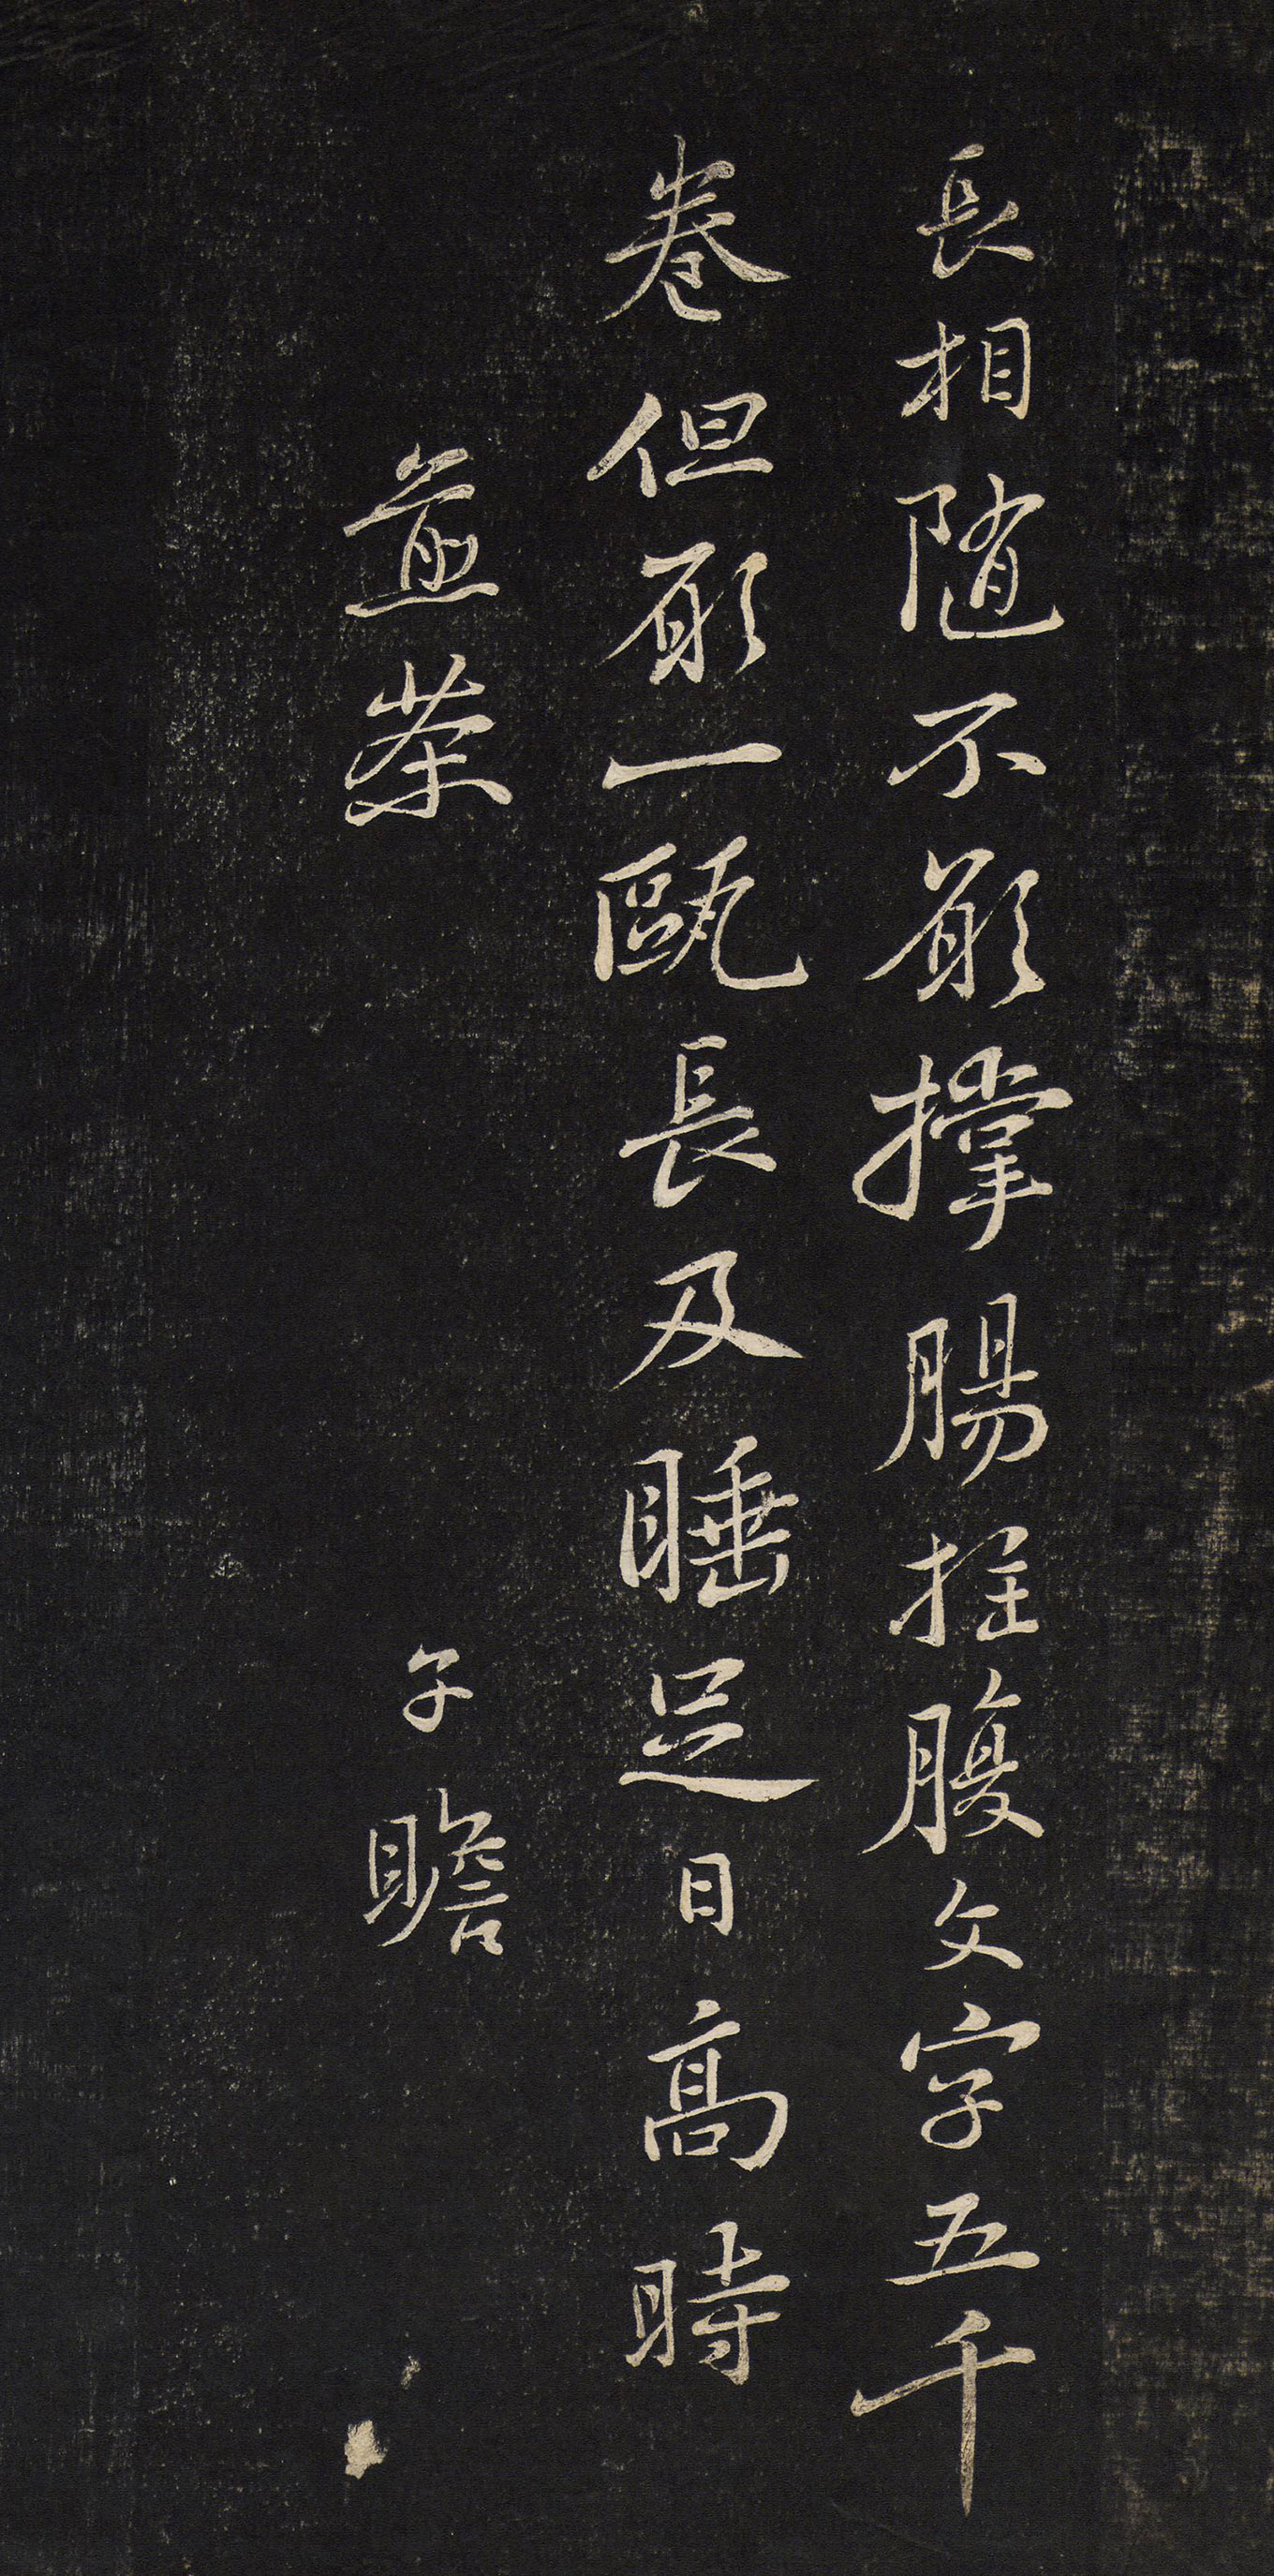 長相随不願撑腸拄腹文字五千
卷但願一甌長及睡足日高時
煎茶
子瞻